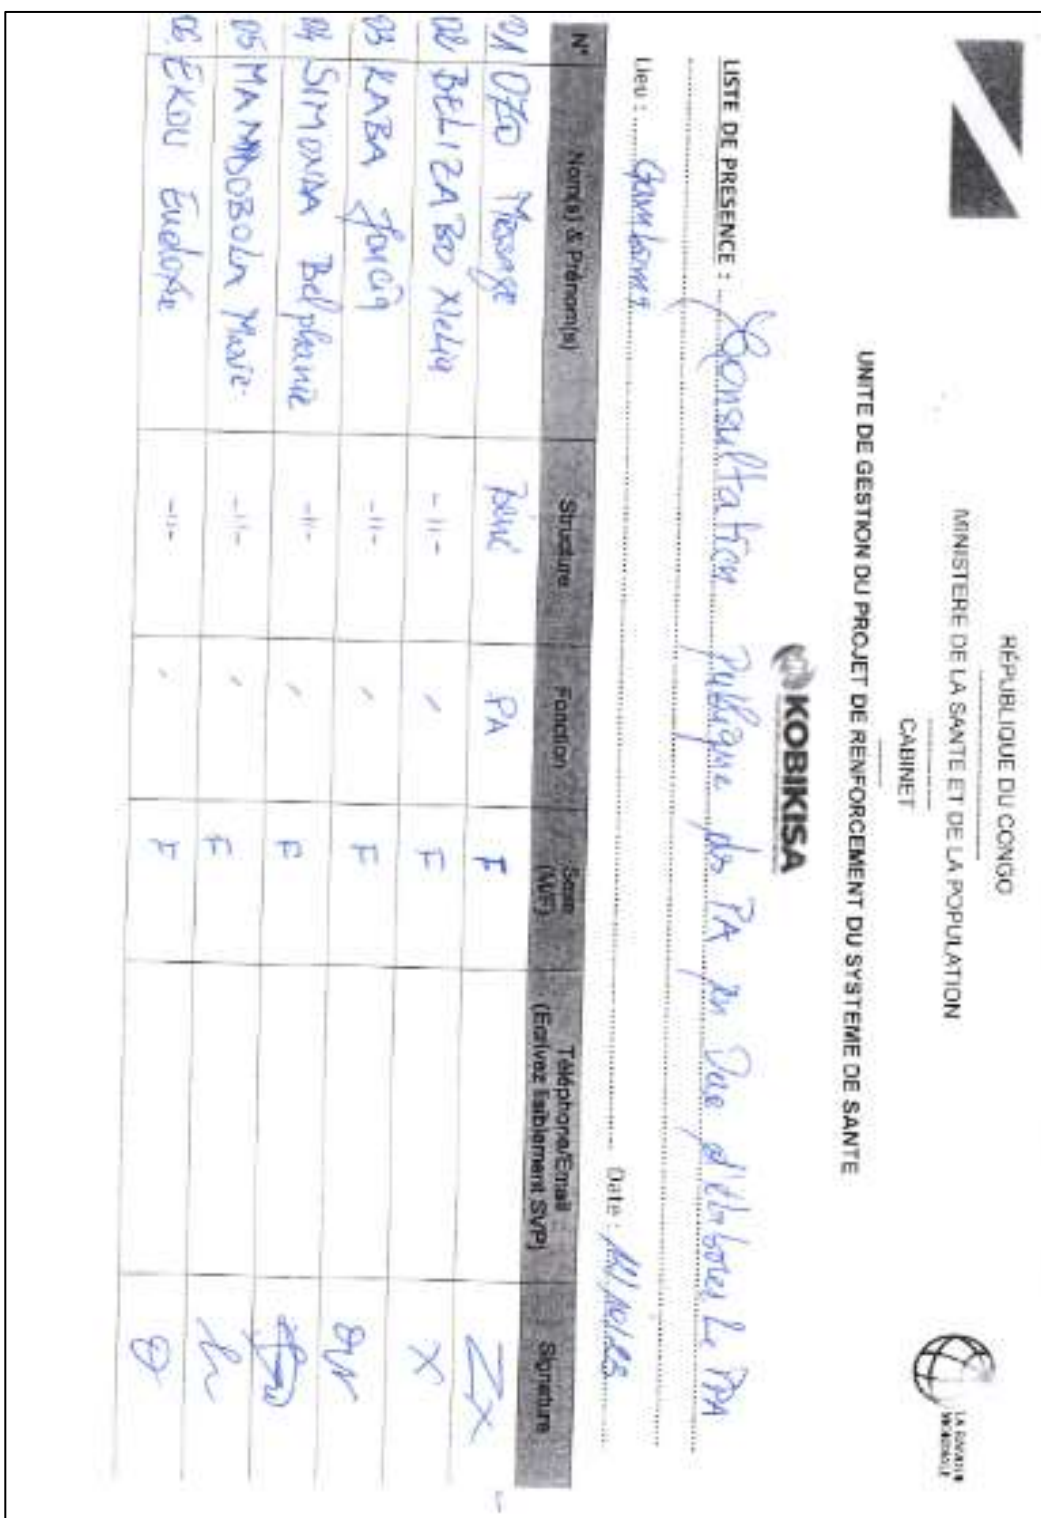 RÉPUBLIQUE DU CONGO
MINISTERE DE LA SANTE ET DE LA POPULATION
CABINET
UNITE DE GESTION DU PROJET DE RENFORCEMENT DU SYSTEME DE SANTE
LA BANQUE MONDIALE
KOBIKISA
LISTE DE PRESENCE : Consultation Publique des PA en Vue d'élaborer Le PPA
Lieu : Gamboma Date : /10/23
N° Nom(s) & Prénom(s) Structure Fonction Sexe (M/F) Téléphone/Email (Ecrivez lisiblement SVP) Signature
01 OZO Message PA F
02 BELIZABO -11- F X
03 KABA -11- F
04 SIMONDA Belphanie -11- F
05 MAMBOBOLA Marie -11- F
06 EKOU Eudoxie -11- F